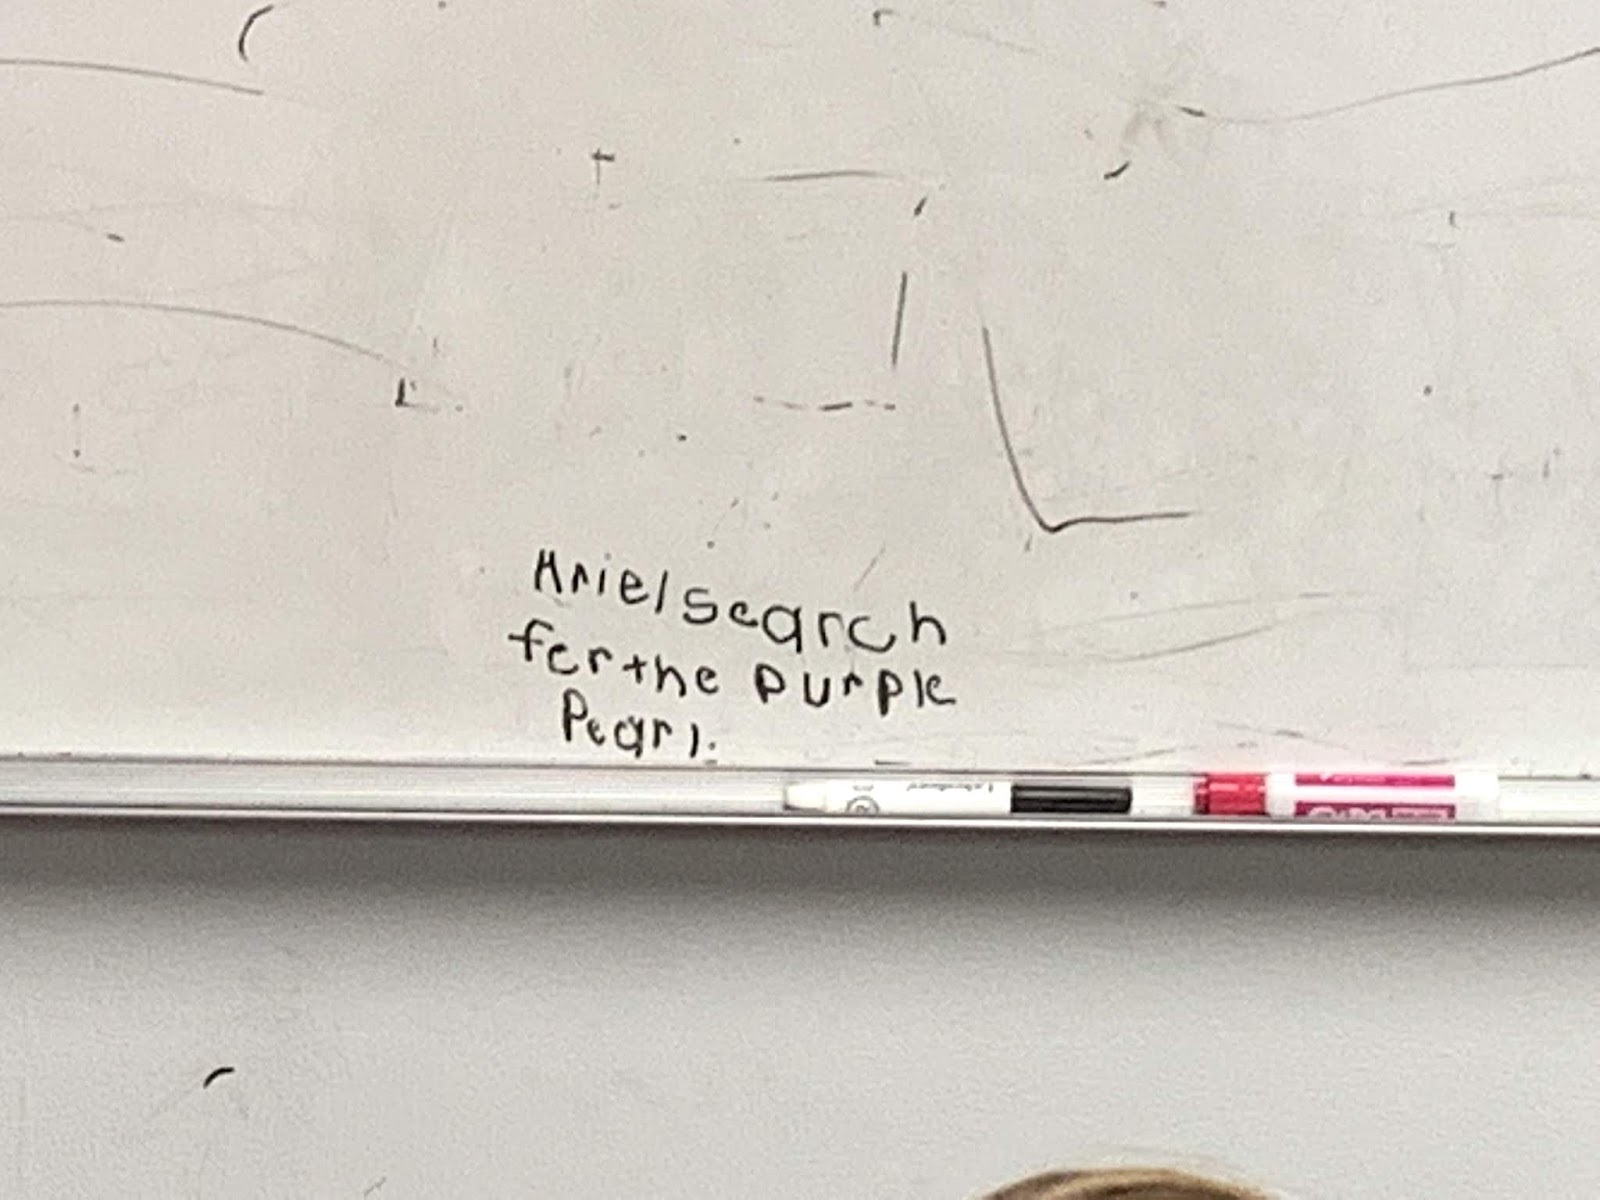 Ariel search
for the purple
Pearl.